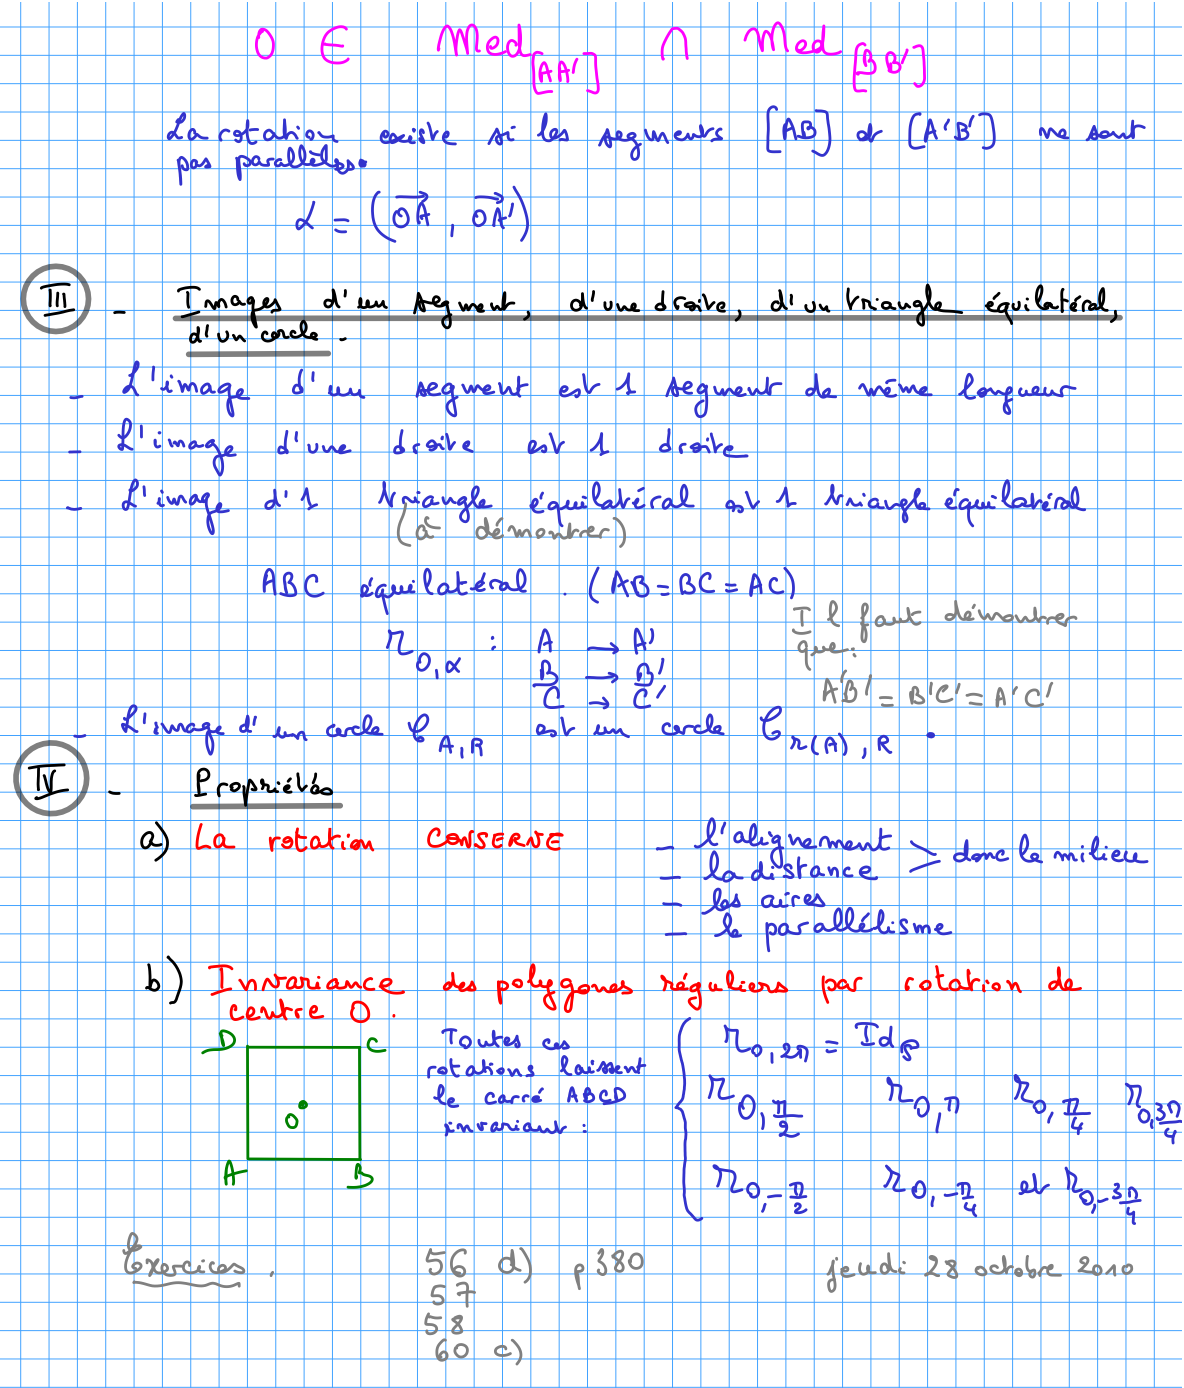 O ∈ Med[AA'] ∩ Med[BB']
La rotation existe si les segments [AB] et [A'B'] ne sont
pas parallèles.
α = (OA, OA')
III - Images d'un segment, d'une droite, d'un triangle équilatéral,
d'un cercle.
- L'image d'un segment est 1 segment de même longueur
- L'image d'une droite est 1 droite
- L'image d'1 triangle équilatéral est 1 triangle équilatéral
(à démontrer)
ABC équilatéral. (AB = BC = AC)
Il faut démontrer
que:
A'B' = B'C' = A'C'
r O,α : A → A'
B → B'
C → C'
- L'image d'un cercle C A,R est un cercle C r(A),R .
IV - Propriétés
a) La rotation CONSERVE
- l'alignement
- la distance
> donc le milieu
- les aires
- le parallélisme
b) Invariance des polygones réguliers par rotation de
centre O.
D C
O
A B
Toutes ces
rotations laissent
le carré ABCD
invariant :
r O,2π = Id P
r O,π/2 r O,π r O,π/4 r O,3π/4
r O,-π/2 r O,-π/4 et r O,-3π/4
Exercices . 56 d) p 380 jeudi 28 octobre 2010
57
58
60 c)